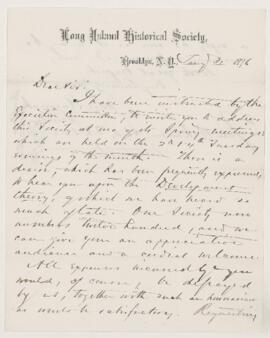 Long Island Historical Society,
Brooklyn, N.Y. Jany 31 1876
Dear Sir
I have been instructed by the
Executive Committee, to invite you to address
this Society at one of its Spring meetings
which are held on the 2d & 4th Tuesday
evenings of the month. There is a
desire, which has been frequently expressed,
to hear you upon the Development
theory, of which we have heard so
much of late. Our Society now
numbers twelve hundred, and we
can give you an appreciative
audience and a cordial welcome.
All expenses incurred by you
would, of course, be defrayed
by us, together with such an honorarium
as would be satisfactory. Requesting